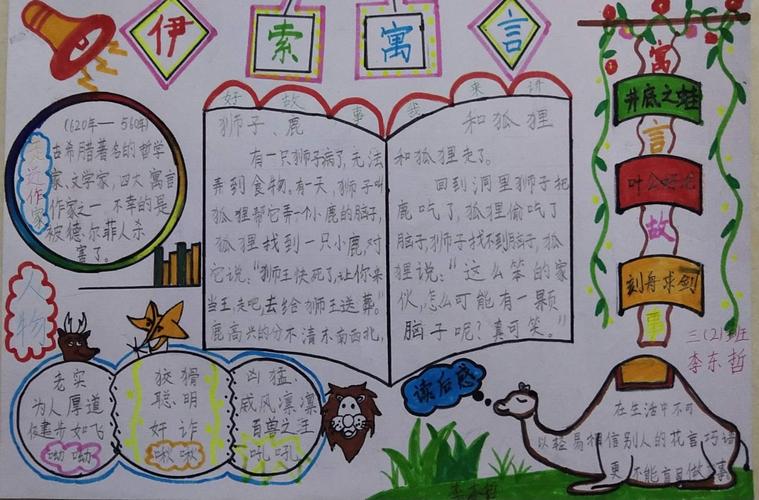 伊索寓言
好故事我来讲
走近作家
(620年—560年)
古希腊著名的哲学
家、文学家,四大寓言
作家之一 不幸的是
被德尔菲人杀
害了。
狮子、鹿
和狐狸
有一只狮子病了,无法
弄到食物。有一天,狮子叫
狐狸帮它弄一个小鹿的脑子,
狐狸找到一只小鹿,对
它说:“狮王快死了,让你来
当王,走吧,去给狮王送葬。”
鹿高兴的分不清东南西北,
和狐狸走了。
回到洞里狮子把
鹿吃了,狐狸偷吃了
脑子,狮子找不到脑子,狐
狸说:“这么笨的家
伙,怎么可能有一颗
脑子呢?真可笑。”
寓言故事
井底之蛙
叶公好龙
刻舟求剑
三(2)班
李东哲
人物
老实
为人厚道
健步如飞
呦呦
狡猾
聪明
奸诈
啾啾
凶猛、
威风凛凛
百兽之王
吼吼
读后感
在生活中不可
以轻易相信别人的花言巧语
更不能盲目做事
李东哲